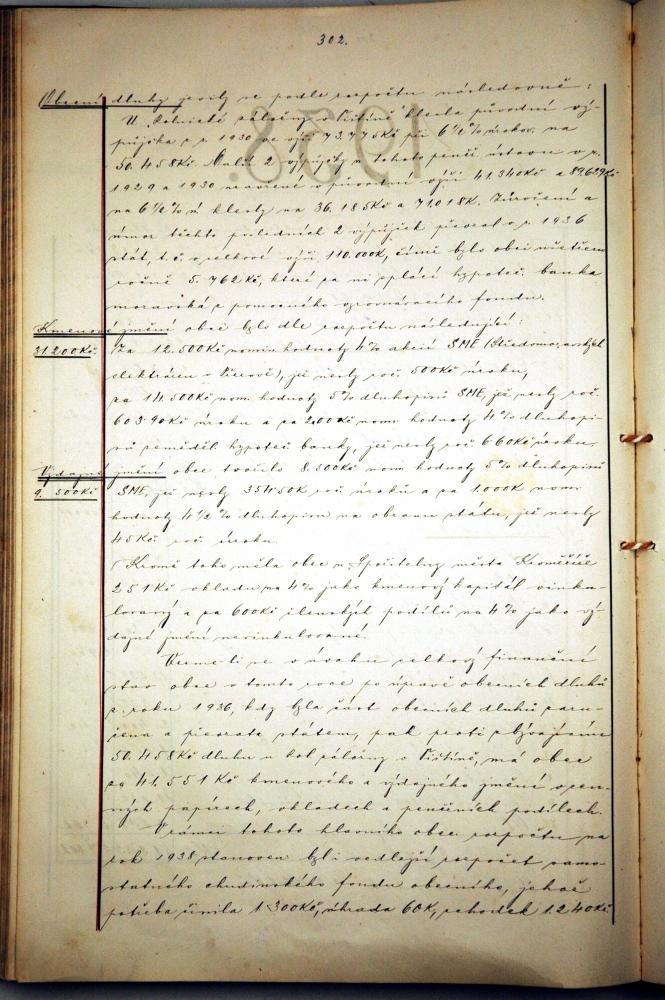 302.
Obecní dluhy jevily se podle rozpočtu následovně:
U Rolnické záložny v Tištíně klesla původní vý-
půjčka z r. 1930 ve výši 73.775 Kč při 6½% úrokov. na
50.458 Kč. Další 2 výpůjčky u tohoto peněž. ústavu v r.
1929 a 1930 v původní výši 41.340 Kč a
na 6½% ú. klesly na 36.185 Kč a 71.018 K. Zúročení a
úmor těchto posledních 2 výpůjček převzal v r. 1936
stát, t. j. v celkové výši 110.000 K, čímž bylo obci
ročně 5.762 Kč, které za ni pplácí hypoteč. banka
moravská z pomocného vyrovnávacího fondu.
Kmenové jmění obce bylo dle rozpočtu následující:
31.200 Kč.
Za 12.500 Kč nomin. hodnoty 4% akcií SME (Středomoravských
elektráren v Přerově), jež nesly roč. 500 Kč úroku,
za 14.500 Kč nom. hodnoty 5% dluhopisů SME, jež nesly roč.
603.90 Kč úroku a za 2.000 Kč nom. hodnoty 4% dluhopi-
sů zeměděl. hypoteč. banky, jež nesly roč. 660 Kč úroku.
Výdajné jmění obce tvořilo 8.500 Kč nom. hodnoty 5% dluhopisů
9.500 Kč
SME, jež nesly 354.50 K roč. úroků a za 1.000 K nom.
hodnoty 4½% dluhopisu na obranu státu, jež nesly
45 Kč roč. úroku.
Kromě toho měla obec u Spořitelny města Kroměříže
251 Kč vkladu na 4% jako kmenový kapitál vinku-
lovaný a za 600 Kč členských podílů na 4% jako vý-
dajné jmění nevinkulované.
Vezme-li se v úvahu celkový finanční
stav obce v tomto roce po úpravě obecních dluhů
z roku 1936, kdy byla část obecních dluhů zaru-
čena a převzata státem, pak proti zbývajícímu
50.458 Kč dluhu u rol. záložny v Tištíně, má obec
za 41.551 Kč kmenového a výdajného jmění v cen-
ných papírech, vkladech a peněžních podílech.
V rámci tohoto hlavního obec. rozpočtu na
rok 1938 stanoven byl i vedlejší rozpočet samo-
statného chudinského fondu obecního, jehož
potřeba činila 1.300 Kč, úhrada 60 K, schodek 1.240 Kč.